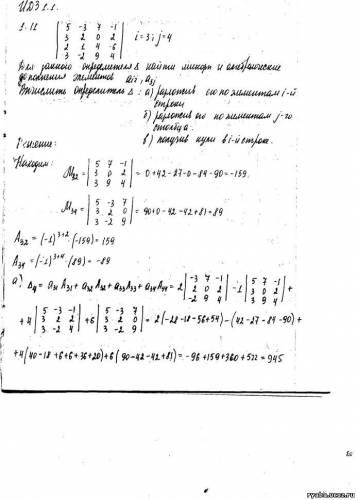 ИДЗ 1.1.
1.11 | 5 -3 7 -1 |
| 3 2 0 2 |
| 2 1 4 -6 |
| 3 -2 9 4 |
i = 3; j = 4
Для данного определителя Δ найти миноры и алгебраические
дополнения элементов ai2, a3j
Вычислить определитель Δ: а) разложив его по элементам i-й
строки
б) разложив его по элементам j-го
столбца.
в) получив нули в i-й строке.
Решение:
Находим:
M32 = | 5 7 -1 |
| 3 0 2 |
| 3 9 4 |
= 0+42-27-0-84-90 = -159.
M34 = | 5 -3 7 |
| 3 2 0 |
| 3 -2 9 |
= 90+0-42-42+81 = 89
A32 = (-1)³⁺² · (-159) = 159
A34 = (-1)³⁺⁴ · (89) = -89
а) Δ4 = a31 A31 + a32 A32 + a33 A33 + a34 A44 = 2 | -3 7 -1 |
| 2 0 2 |
| -2 9 4 |
-1 | 5 7 -1 |
| 3 0 2 |
| 3 9 4 | +
+4 | 5 -3 -1 |
| 3 2 2 |
| 3 -2 4 |
+6 | 5 -3 7 |
| 3 2 0 |
| 3 -2 9 |
= 2(-28-18-56+54) - (42-27-84-90) +
+4(40-18+6+6+36+20)+6(90-42-42+81) = -96+159+360+522 = 945
ryabo.ucoz.ru